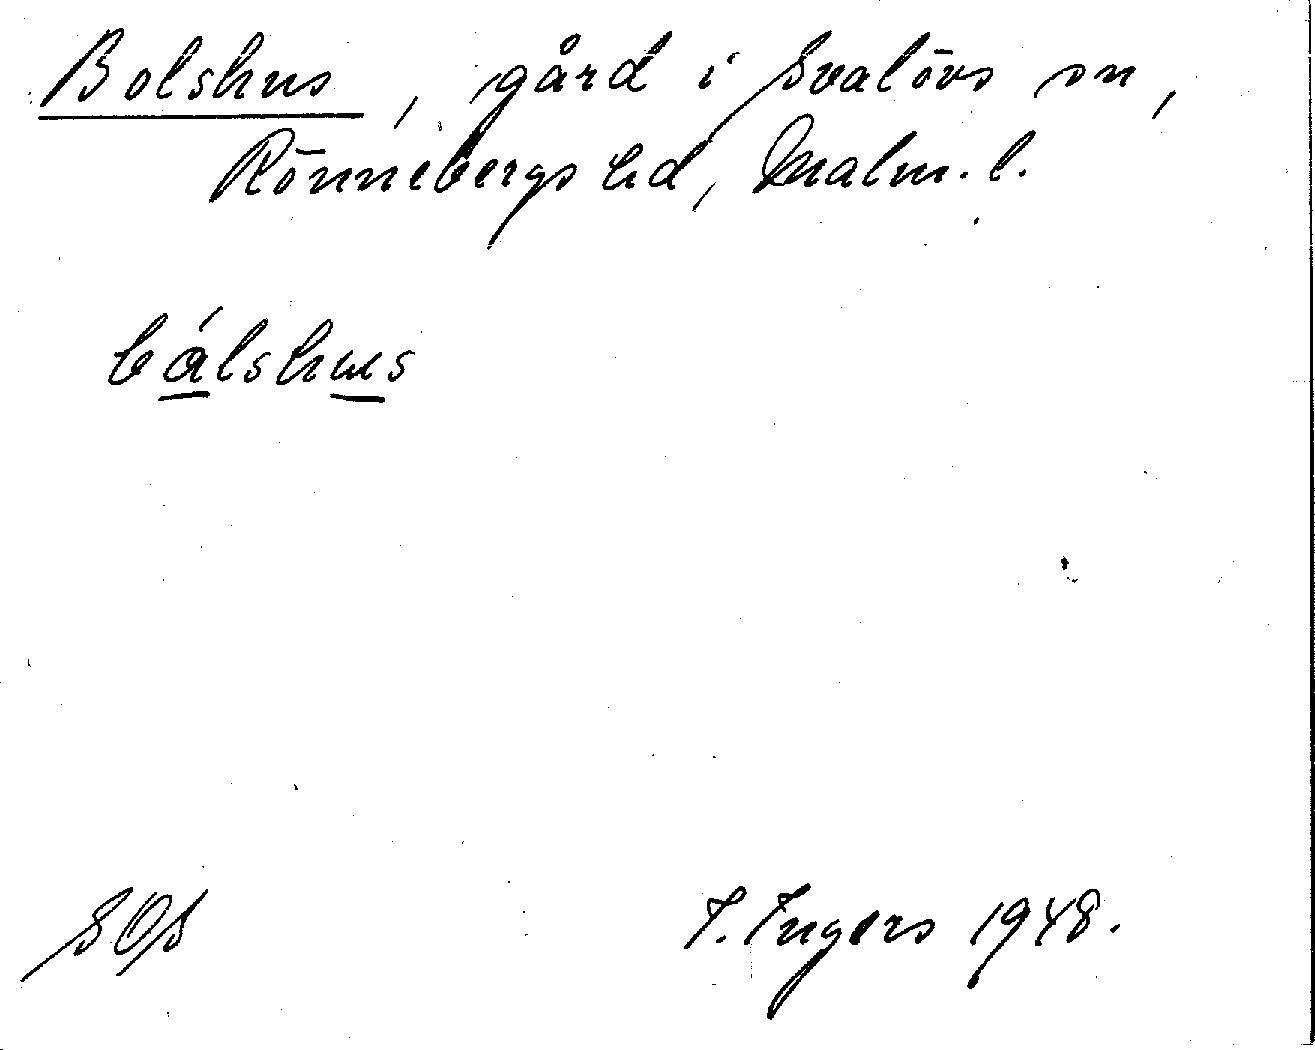 Bolshus, gård i Svalövs sn,
Rönnebergs hd, Malm. l.
bálshus
SOS I. Ingers 1948.